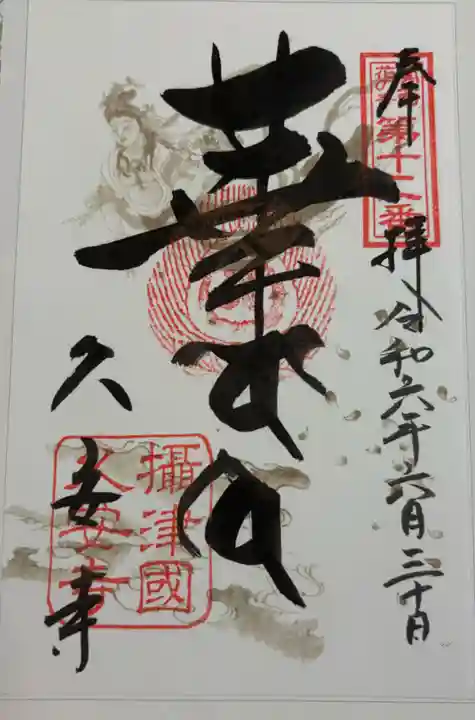 奉拝 令和六年六月三十日
第十二番
華
攝津國
久安寺
久安寺